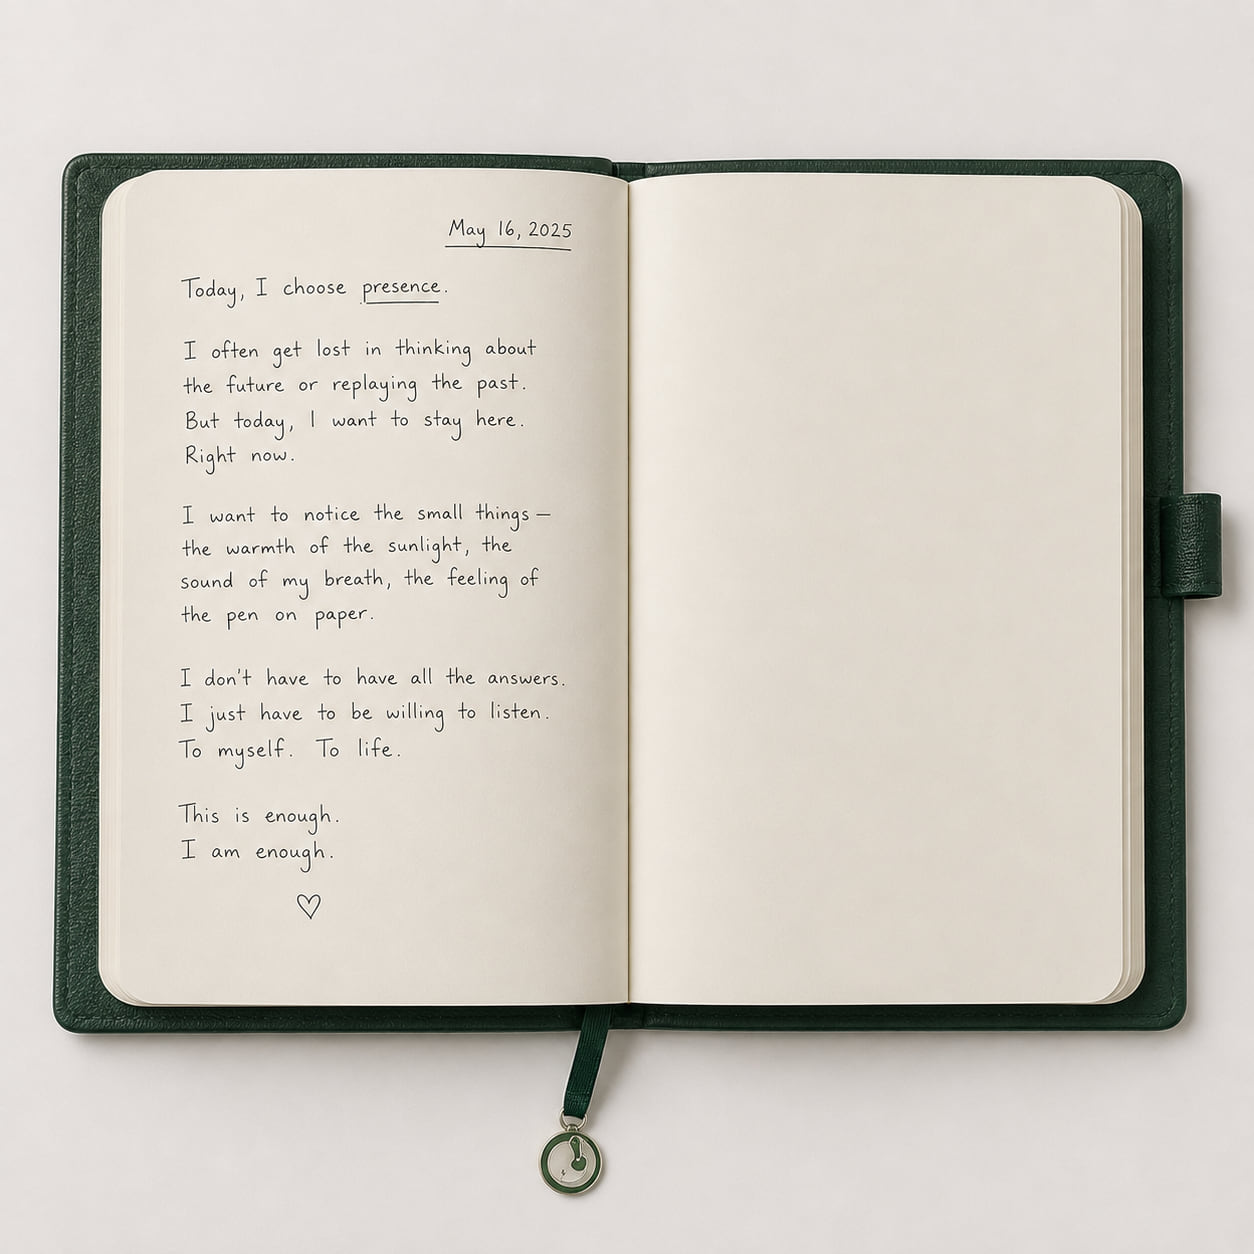 May 16, 2025
Today, I choose presence.
I often get lost in thinking about
the future or replaying the past.
But today, I want to stay here.
Right now.
I want to notice the small things —
the warmth of the sunlight, the
sound of my breath, the feeling of
the pen on paper.
I don't have to have all the answers.
I just have to be willing to listen.
To myself. To life.
This is enough.
I am enough.